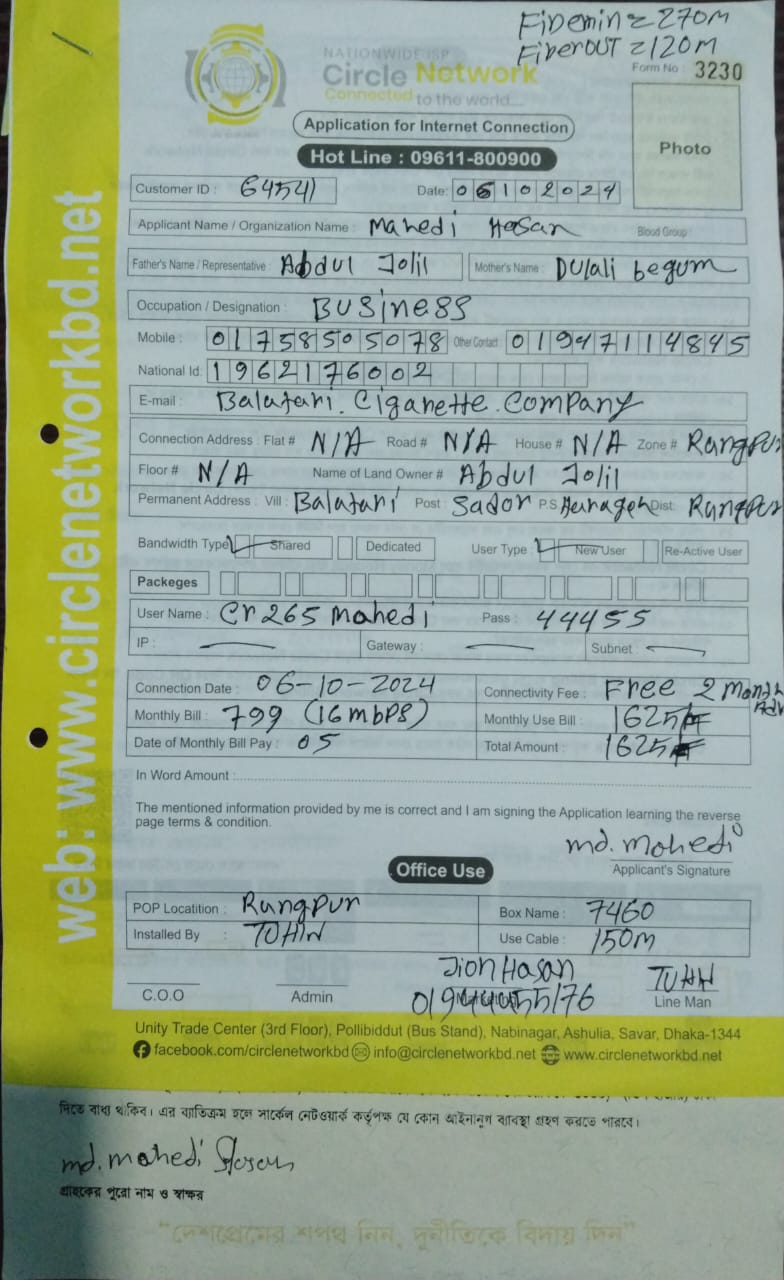 Fibemin = 270m
FiberOUT = 120m
NATIONWIDE ISP
Circle Network
Connected to the world....
Form No : 3230
Application for Internet Connection
Photo
Hot Line : 09611-800900
Customer ID : 64541 Date: 06102024
Applicant Name / Organization Name : Mahedi Hasan Blood Group :
Father's Name / Representative : Abdul Jolil Mother's Name : Dulali begum
Occupation / Designation : Business
Mobile : 01758505078 Other Contact : 01947114845
National Id: 1962176002
E-mail : Balatari. Cigarette. Company
Connection Address : Flat # N/A Road # N/A House # N/A Zone # Rangpur
Floor # N/A Name of Land Owner # Abdul Jolil
Permanent Address : Vill : Balatari Post : Sador P.S Dist: Rangpur
Bandwidth Type Shared Dedicated User Type : New User Re-Active User
Packeges
User Name : Cr265 mahedi Pass : 44455
IP : Gateway : Subnet :
Connection Date : 06-10-2024 Connectivity Fee : Free 2 Month Adv
Monthly Bill : 799 (16mbps) Monthly Use Bill : 1625
Date of Monthly Bill Pay : 05 Total Amount : 1625
In Word Amount :
The mentioned information provided by me is correct and I am signing the Application learning the reverse
page terms & condition.
md. mohedi
Applicant's Signature
Office Use
POP Locatition : Rangpur Box Name : 7460
Installed By : TOHIN Use Cable : 150m
Jion Hasan
C.O.O Admin Line Man
Unity Trade Center (3rd Floor), Pollibiddut (Bus Stand), Nabinagar, Ashulia, Savar, Dhaka-1344
facebook.com/circlenetworkbd info@circlenetworkbd.net www.circlenetworkbd.net
web: www.circlenetworkbd.net
দিতে বাধ্য থাকিব। এর ব্যতিক্রম হলে সার্কেল নেটওয়ার্ক কর্তৃপক্ষ যে কোন আইনানুগ ব্যাবস্থা গ্রহণ করতে পারবে।
md. mahedi Hasan
গ্রাহকের পুরো নাম ও স্বাক্ষর
"দেশপ্রেমের শপথ নিন, দুর্নীতিকে বিদায় দিন"